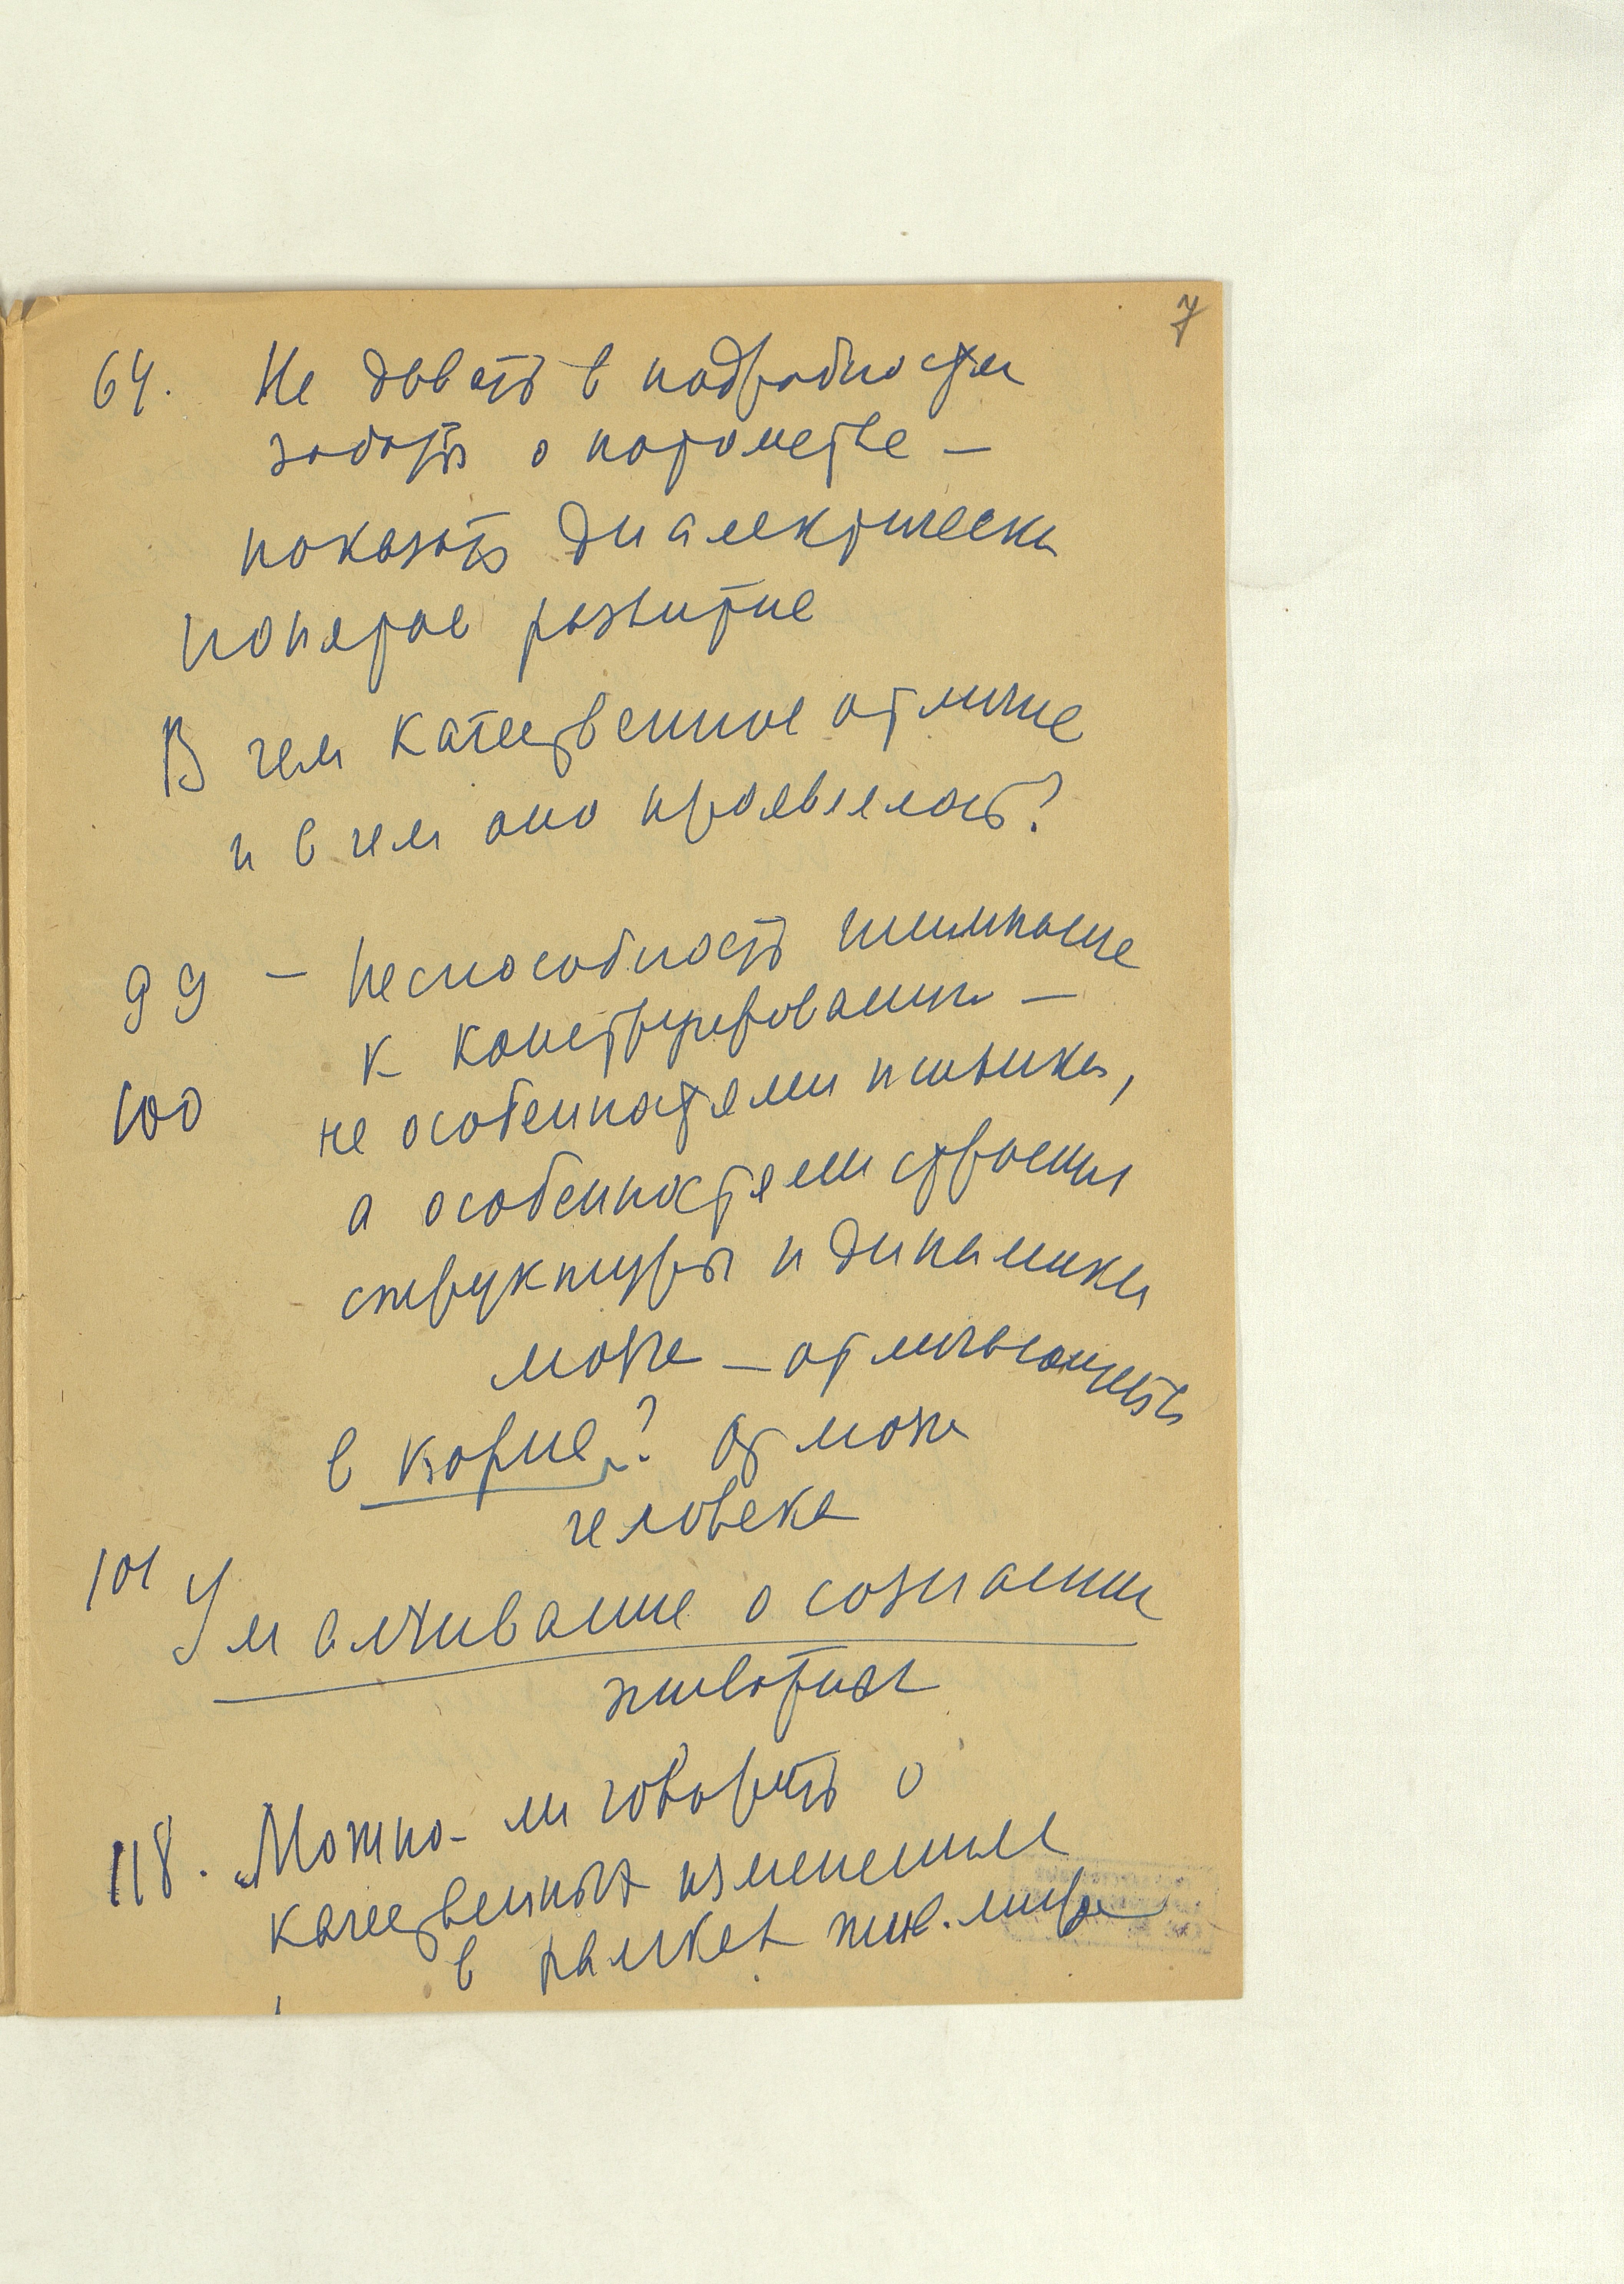 7
64. Не давать в подробностях
заботь о потомстве —
показать диалектически
понятое развитие
В чем качественное отличие
и в чем оно проявлялось?
99 — Неспособность шимпанзе
к конструированию —
100 не особенностями психики,
а особенностями строения
структуры и динамики
мозга — отличающегося
в корне? от мозга
человека
101 Умалчивание о сознании
животных
118. Можно-ли говорить о
качественных изменениях
в рамках жив. мира